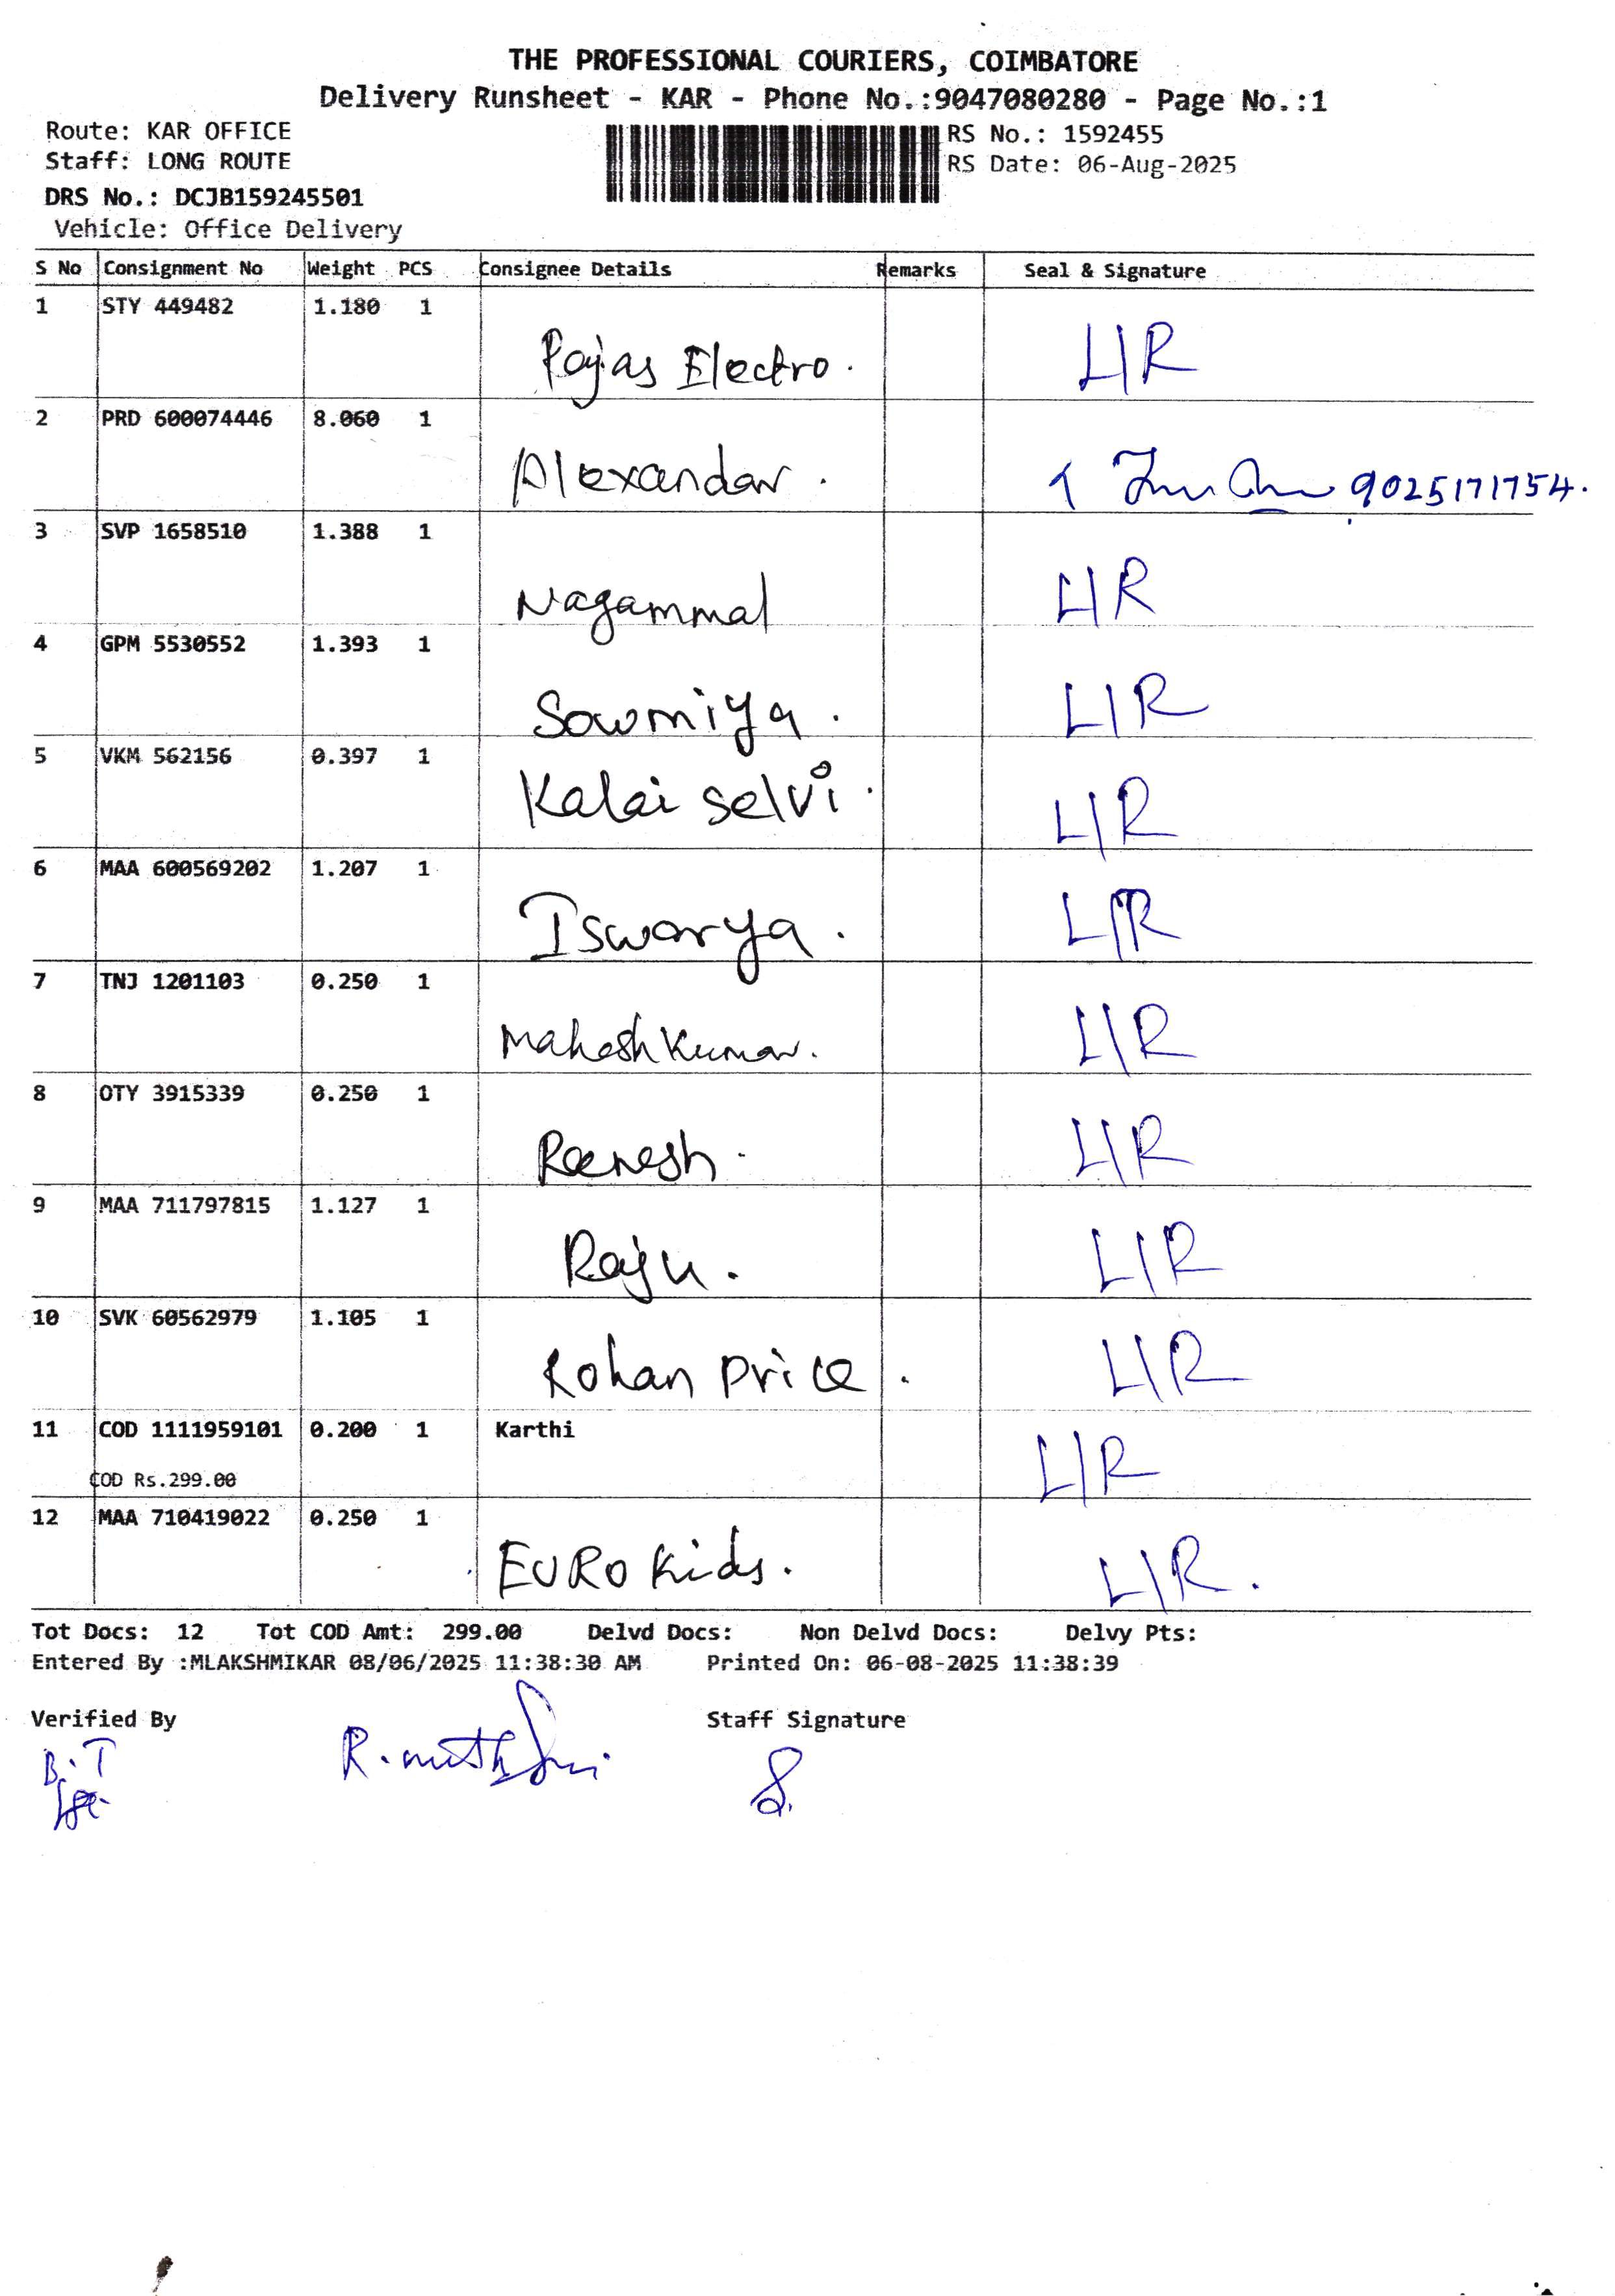 THE PROFESSIONAL COURIERS, COIMBATORE
Delivery Runsheet - KAR - Phone No.:9047080280 - Page No.:1
Route: KAR OFFICE
RS No.: 1592455
Staff: LONG ROUTE
RS Date: 06-Aug-2025
DRS No.: DCJB159245501
Vehicle: Office Delivery
S No Consignment No Weight PCS Consignee Details Remarks Seal & Signature
1 STY 449482 1.180 1
Electro. L/R
2 PRD 600074446 8.060 1
Alexandar. 9025171754.
3 SVP 1658510 1.388 1
Nagammal L/R
4 GPM 5530552 1.393 1
Sowmiya. L/R
5 VKM 562156 0.397 1
Kalai selvi. L/R
6 MAA 600569202 1.207 1
Iswarya. L/R
7 TNJ 1201103 0.250 1
Mahesh Kumar. L/R
8 OTY 3915339 0.250 1
L/R
9 MAA 711797815 1.127 1
Raju. L/R
10 SVK 60562979 1.105 1
Rohan Price. L/R
11 COD 1111959101 0.200 1 Karthi
L/R
COD Rs.299.00
12 MAA 710419022 0.250 1
EURO Kids. L/R.
Tot Docs: 12 Tot COD Amt: 299.00 Delvd Docs: Non Delvd Docs: Delvy Pts:
Entered By :MLAKSHMIKAR 08/06/2025 11:38:30 AM Printed On: 06-08-2025 11:38:39
Verified By Staff Signature
B.T